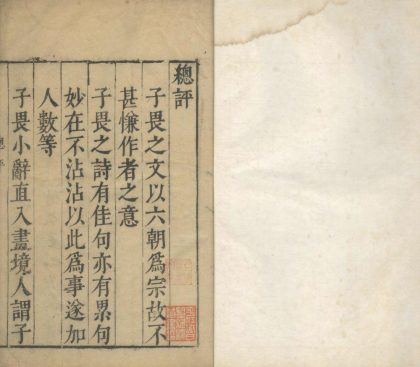 總評
子畏之文以六朝爲宗故不
甚慊作者之意
子畏之詩有佳句亦有累句
妙在不沾沾以此爲事遂加
人數等
子畏小辭直入畫境人謂子